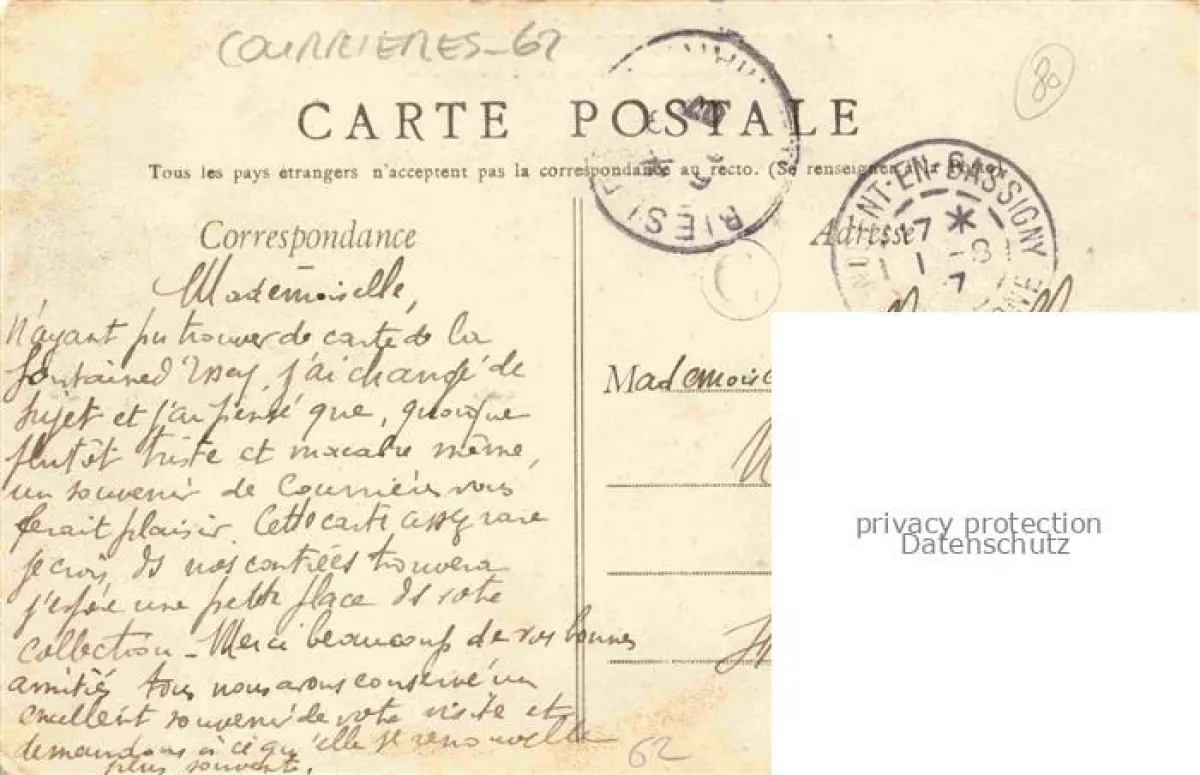 COURRIERES-62
80
CARTE POSTALE
Tous les pays étrangers n'acceptent pas la correspondance au recto. (Se renseigner à la Poste)
RIESL
EN-BASSIGNY
17 *
7
Correspondance
Adresse
Mademoiselle,
N'ayant pu trouver de carte de la
fontaine d'Issey, j'ai changé de
sujet et j'ai pensé que, quoique
plutôt triste et macabre même,
un souvenir de Courrières vous
ferait plaisir. Cette carte assez rare
je crois, ds nos contrées trouvera
j'espère une petite place ds votre
collection - Merci beaucoup de vos bonnes
amitiés tous nous avons conservé un
excellent souvenir de votre visite et
demandons à ce qu'elle se renouvelle
plus souvente.
Mademois
62
privacy protection
Datenschutz